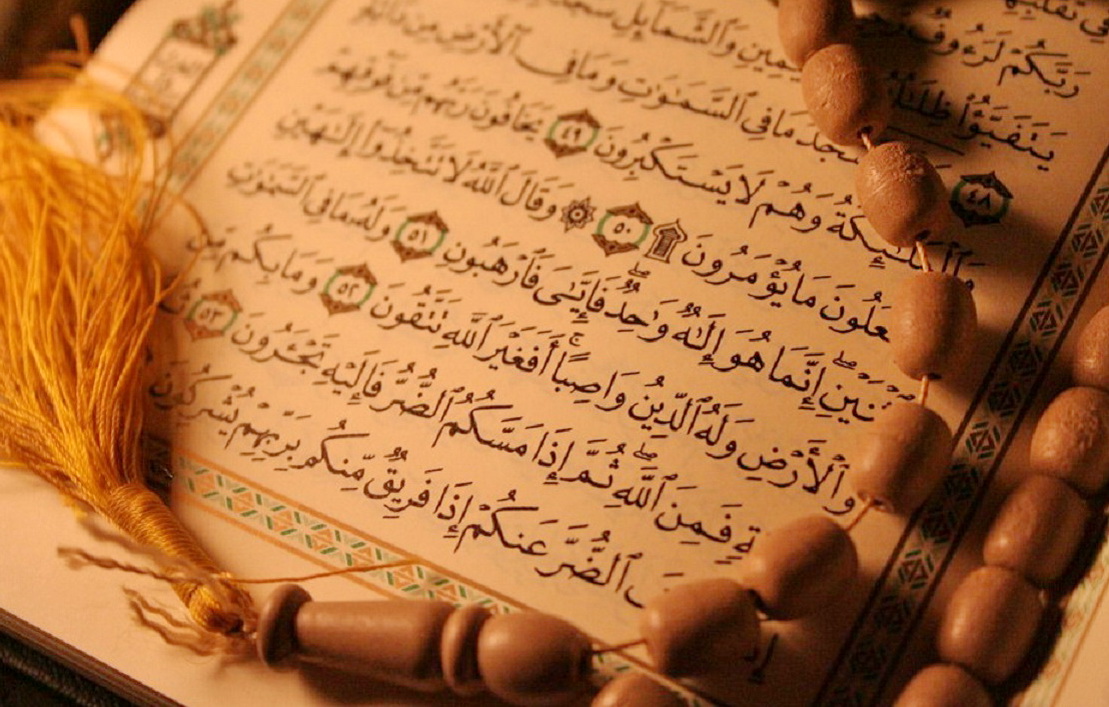 رَبَّكُمْ لَرَءُوفٌ
يَتَفَيَّؤُا۟ ظِلَـٰلُهُ يَمِينِ وَٱلشَّمَآئِلِ سُجَّدًا
٤٨ سْجُدُ مَا فِى ٱلسَّمَـٰوَٰتِ وَمَا فِى ٱلْأَرْضِ مِن دَآبَّةٍ
وَٱلْمَلَـٰٓئِكَةُ وَهُمْ لَا يَسْتَكْبِرُونَ ٤٩ يَخَافُونَ رَبَّهُم مِّن فَوْقِهِمْ
عَلُونَ مَا يُؤْمَرُونَ ۩ ٥٠ ۞ وَقَالَ ٱللَّهُ لَا تَتَّخِذُوٓا۟ إِلَـٰهَيْنِ
ثْنَيْنِ ۖ إِنَّمَا هُوَ إِلَـٰهٌ وَٰحِدٌ ۖ فَإِيَّـٰىَ فَٱرْهَبُونِ ٥١ وَلَهُۥ مَا فِى ٱلسَّمَـٰوَٰتِ
وَٱلْأَرْضِ وَلَهُ ٱلدِّينُ وَاصِبًا ۚ أَفَغَيْرَ ٱللَّهِ تَتَّقُونَ ٥٢ وَمَا بِكُم مِّن
ةٍ فَمِنَ ٱللَّهِ ۖ ثُمَّ إِذَا مَسَّكُمُ ٱلضُّرُّ فَإِلَيْهِ تَجْـَٔرُونَ ٥٣
ٱلضُّرَّ عَنكُمْ إِذَا فَرِيقٌ مِّنكُم بِرَبِّهِمْ يُشْرِكُونَ